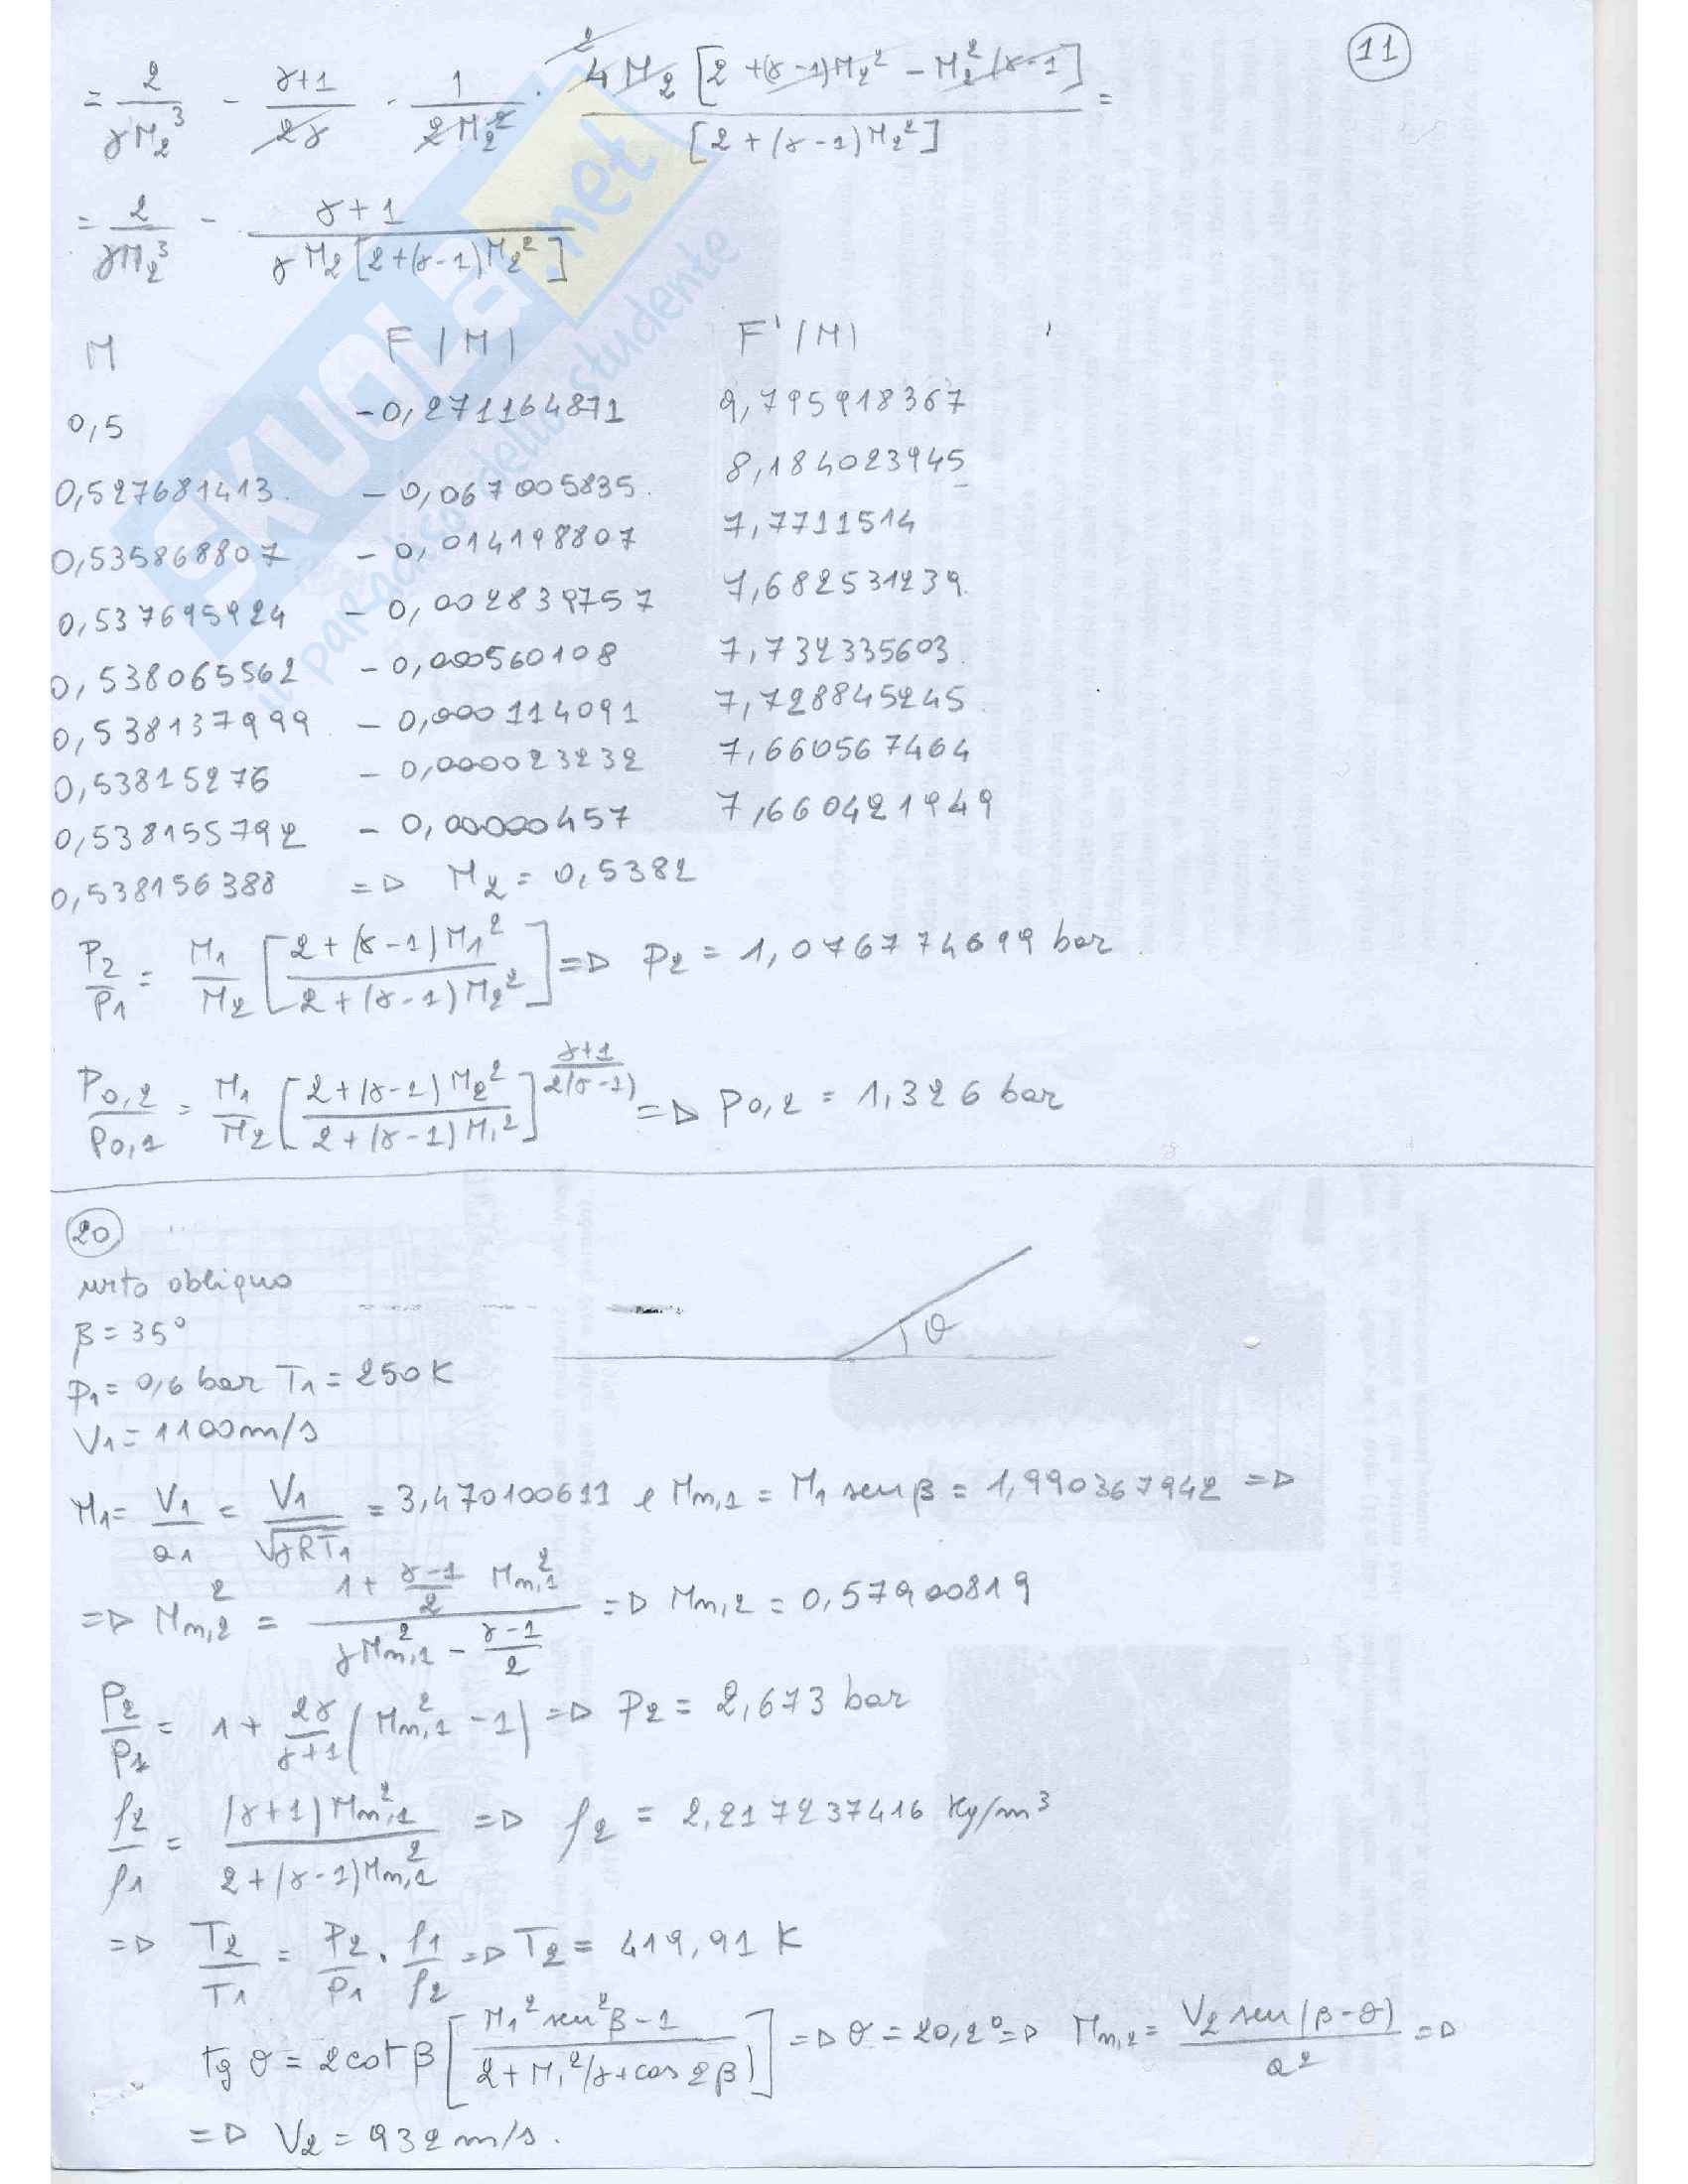 11
= 2/(γM₂³) - (γ+1)/(2γ) · 1/(2M₂²) · 2 4M₂[2+(γ-1)M₂² - M₂²(γ-1)]/[2+(γ-1)M₂²] =
= 2/(γM₂³) - (γ+1)/(γM₂[2+(γ-1)M₂²])
M F(M) F'(M)
0,5 -0,271164871 9,795918367
0,527681413 -0,067005835 8,184023945
0,535868807 -0,014198807 7,7711514
0,537695924 -0,002839757 7,682531239
0,538065562 -0,000560108 7,732335603
0,538137999 -0,000114091 7,728845245
0,53815276 -0,000023232 7,660567464
0,538155792 -0,00000457 7,660421949
0,538156388 => M₂ = 0,5382
P₂/P₁ = M₁/M₂ [(2+(γ-1)M₁²)/(2+(γ-1)M₂²)] => P₂ = 1,076774699 bar
P₀,₂/P₀,₁ = M₁/M₂ [(2+(γ-1)M₂²)/(2+(γ-1)M₁²)]^((γ+1)/(2(γ-1))) => P₀,₂ = 1,326 bar
20
urto obliquo
β = 35°
θ
P₁ = 0,6 bar T₁ = 250 K
V₁ = 1100 m/s
M₁ = V₁/a₁ = V₁/√(γRT₁) = 3,470100611 e Mn,₁ = M₁ sen β = 1,990367942 =>
=> Mn,₂² = (1 + (γ-1)/2 Mn,₁²)/(γMn,₁² - (γ-1)/2) => Mn,₂ = 0,57900819
P₂/P₁ = 1 + 2γ/(γ+1) (Mn,₁² - 1) => P₂ = 2,673 bar
ρ₂/ρ₁ = (γ+1)Mn,₁²/(2+(γ-1)Mn,₁²) => ρ₂ = 2,217237416 Kg/m³
=> T₂/T₁ = P₂/P₁ · ρ₁/ρ₂ => T₂ = 419,91 K
tg θ = 2cot β [(M₁² sen²β - 1)/(2+M₁²(γ+cos2β))] => θ = 20,2° => Mn,₂ = V₂ sen(β-θ)/a² =>
=> V₂ = 932 m/s.
SKUOLA.net
il paradiso dello studente